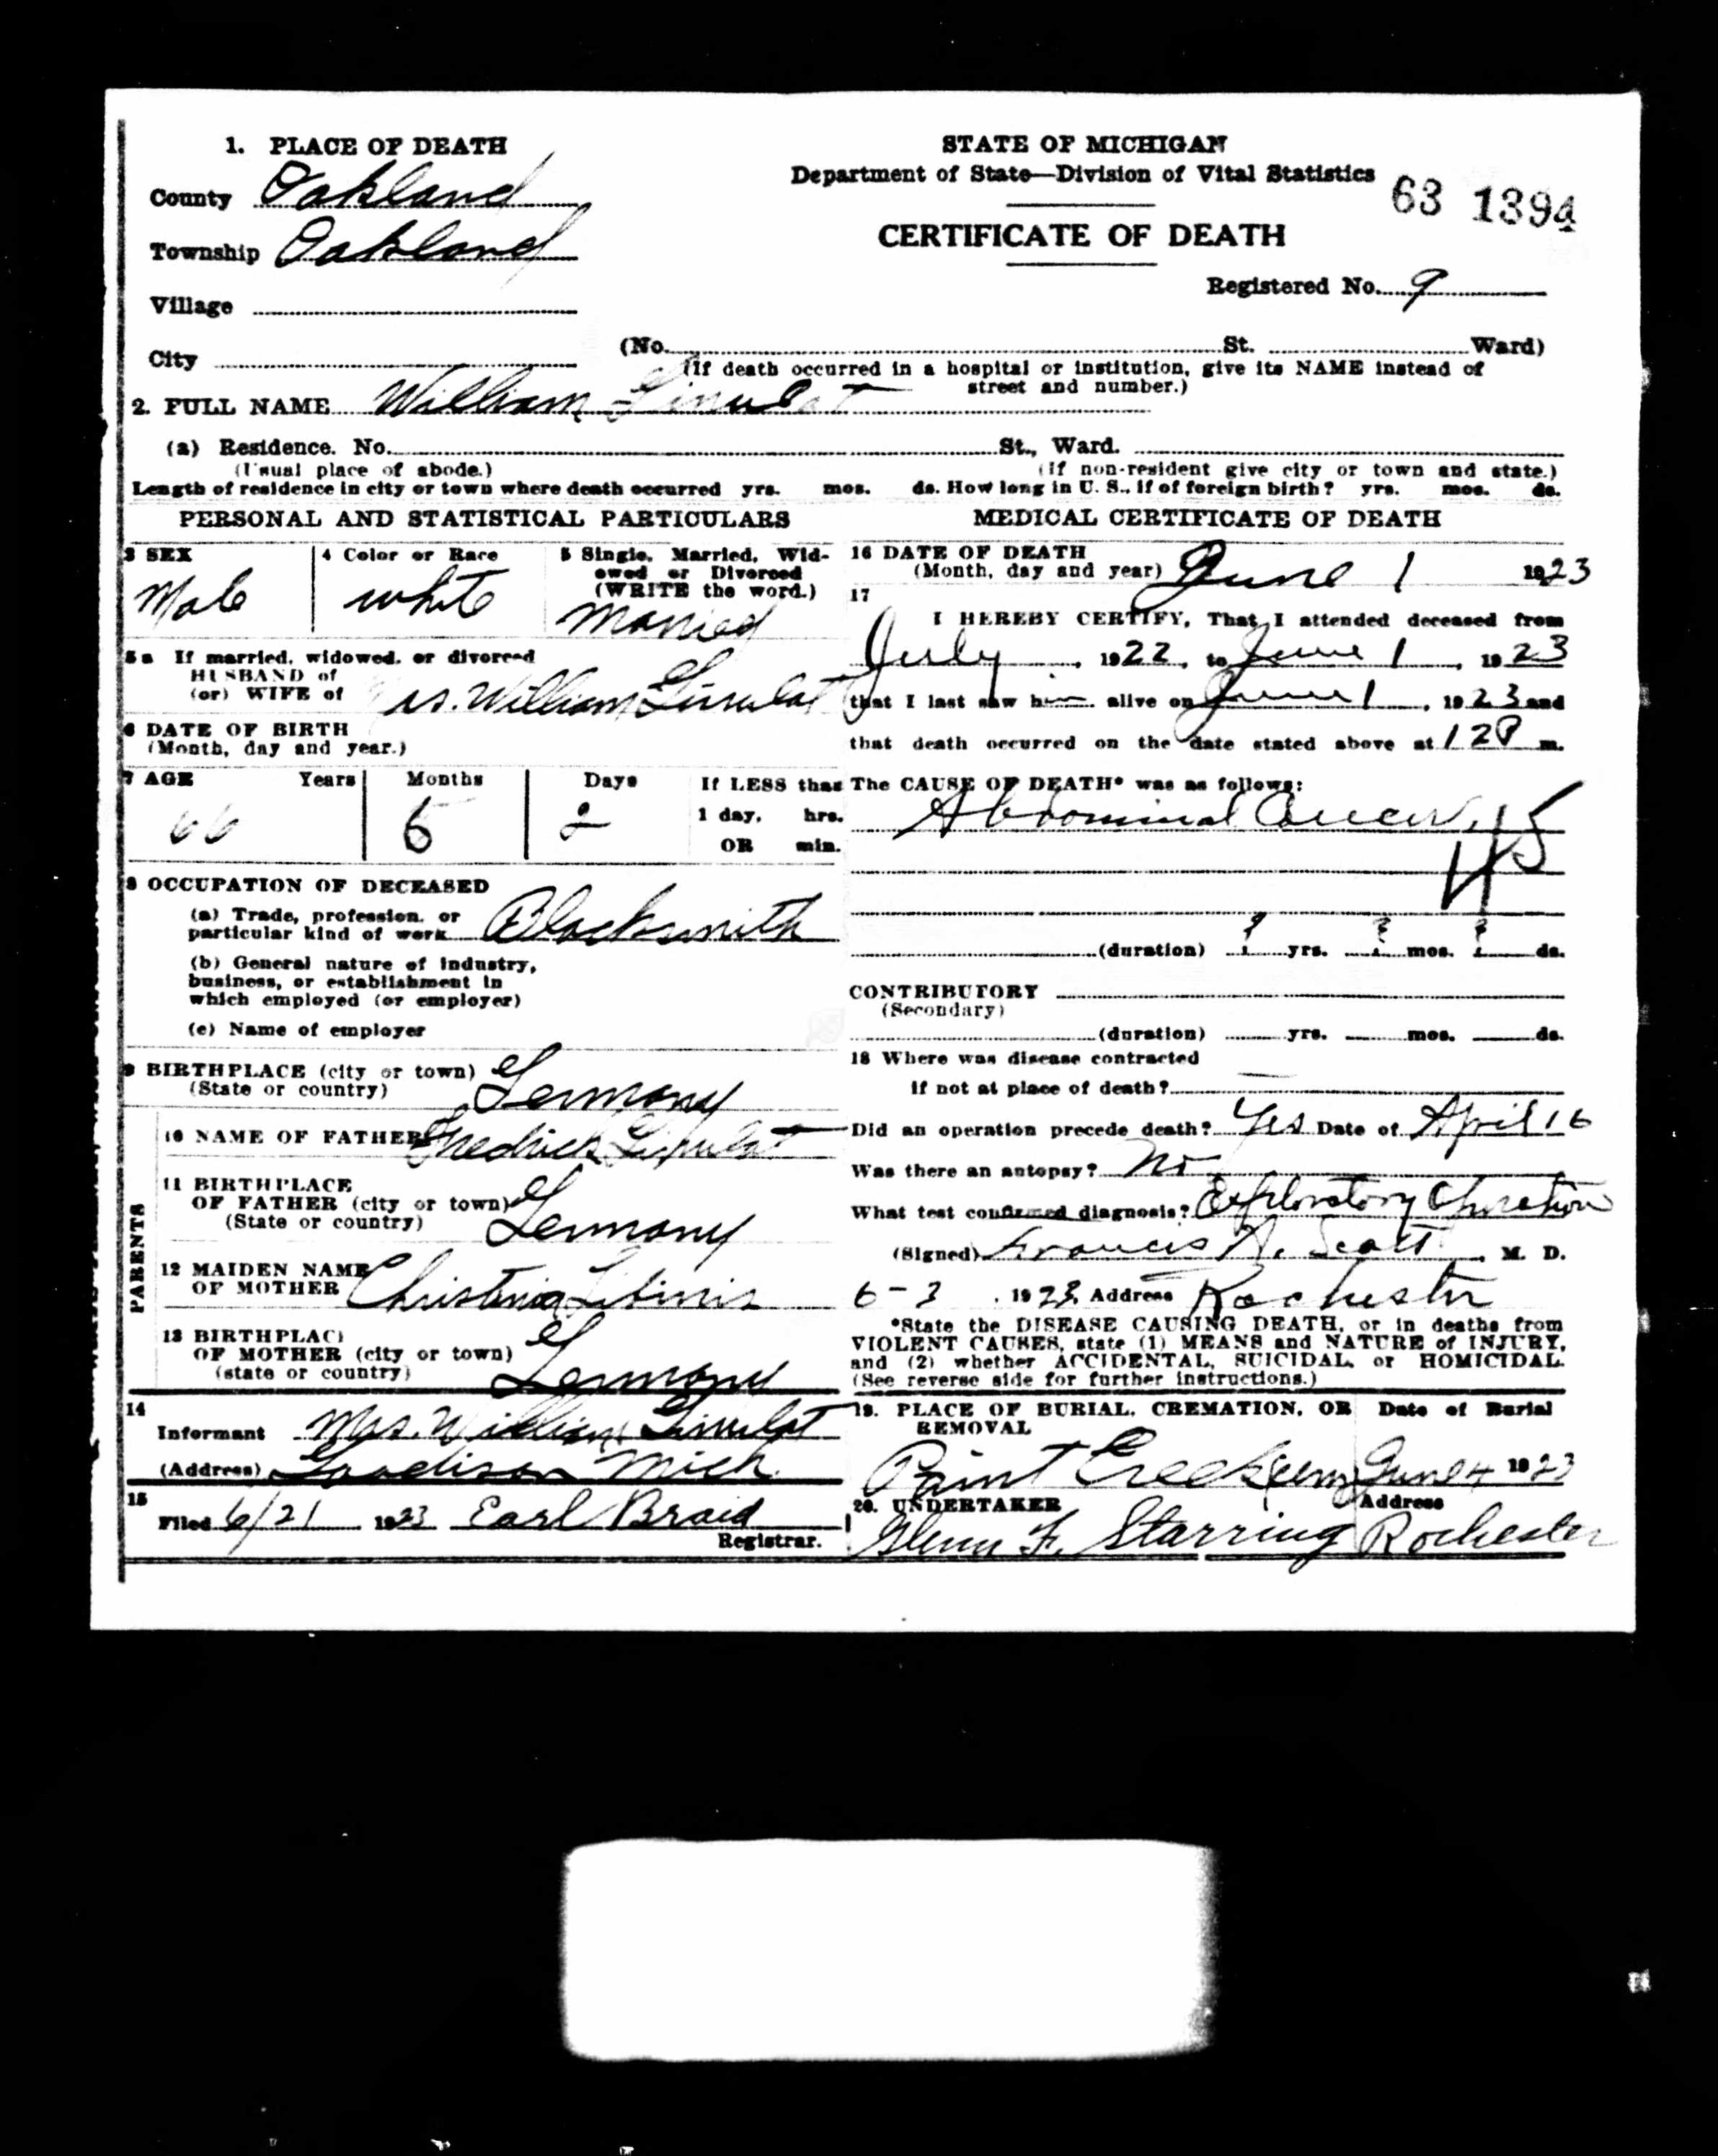 1. PLACE OF DEATH
County Oakland
Township Oakland
Village
City
STATE OF MICHIGAN
Department of State—Division of Vital Statistics
63 1394
CERTIFICATE OF DEATH
Registered No. 9
(No. St. Ward)
(If death occurred in a hospital or institution, give its NAME instead of
street and number.)
2. FULL NAME William
(a) Residence. No. St., Ward.
(Usual place of abode.) (If non-resident give city or town and state.)
Length of residence in city or town where death occurred yrs. mos. ds. How long in U. S., if of foreign birth? yrs. mos. ds.
PERSONAL AND STATISTICAL PARTICULARS
3 SEX
Male
4 Color or Race
white
5 Single, Married, Wid-
owed or Divorced
(WRITE the word.)
Married
5a If married, widowed, or divorced
HUSBAND of
(or) WIFE of Mrs. William
6 DATE OF BIRTH
(Month, day and year.)
7 AGE Years Months Days If LESS than
1 day, hrs.
OR min.
66 2
8 OCCUPATION OF DECEASED
(a) Trade, profession, or
particular kind of work Blacksmith
(b) General nature of industry,
business, or establishment in
which employed (or employer)
(c) Name of employer
9 BIRTHPLACE (city or town)
(State or country) Germany
PARENTS
10 NAME OF FATHER Fredrick
11 BIRTHPLACE
OF FATHER (city or town)
(State or country) Germany
12 MAIDEN NAME
OF MOTHER Christina
13 BIRTHPLACE
OF MOTHER (city or town)
(state or country) Germany
14
Informant Mrs. William
(Address) Goodison Mich.
15
Filed 6/21 1923 Earl Braid
Registrar.
MEDICAL CERTIFICATE OF DEATH
16 DATE OF DEATH
(Month, day and year) June 1 1923
17
I HEREBY CERTIFY, That I attended deceased from
July , 1922, to June 1 , 1923
that I last saw him alive on June 1 , 1923 and
that death occurred on the date stated above at m.
The CAUSE OF DEATH* was as follows:
Abdominal Cancer.
45
(duration) ? yrs. ? mos. ? ds.
CONTRIBUTORY
(Secondary)
(duration) yrs. mos. ds.
18 Where was disease contracted
if not at place of death?
Did an operation precede death? Yes Date of April 16
Was there an autopsy? No
What test confirmed diagnosis? Exploratory Operation
(Signed) Francis Scott , M. D.
6-3 , 1923 Address Rochester
*State the DISEASE CAUSING DEATH, or in deaths from
VIOLENT CAUSES, state (1) MEANS and NATURE of INJURY,
and (2) whether ACCIDENTAL, SUICIDAL, or HOMICIDAL.
(See reverse side for further instructions.)
19. PLACE OF BURIAL, CREMATION, OR REMOVAL Date of Burial
Paint Creek Cem June 4 1923
20. UNDERTAKER Address
Glenn F. Starring Rochester